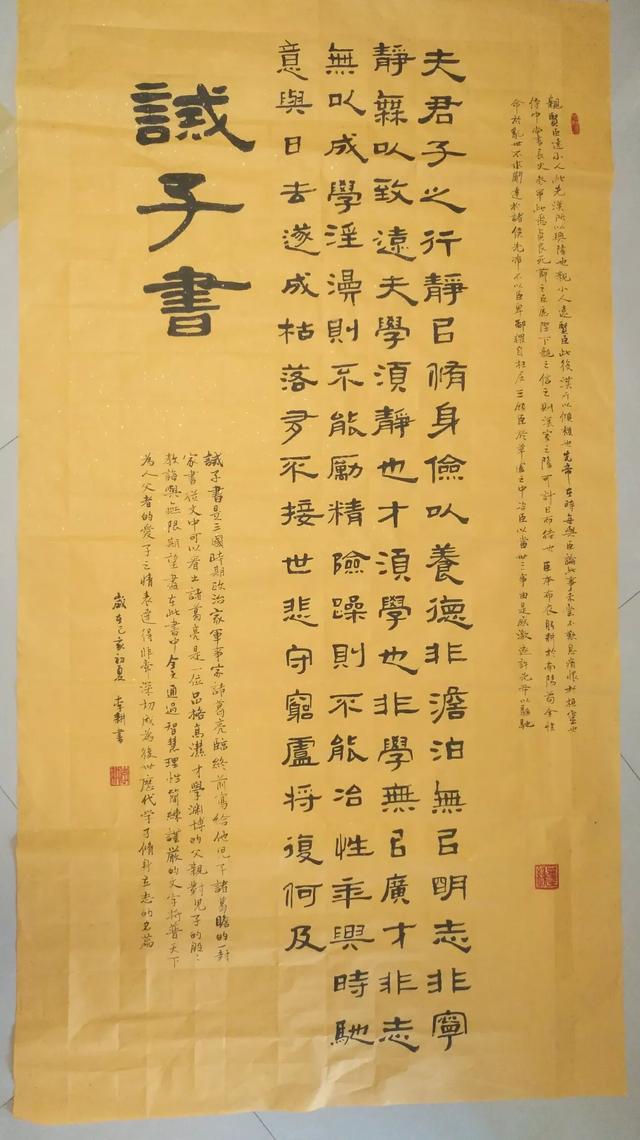 親賢臣遠小人此先漢所以興隆也親小人遠賢臣此後漢所以傾頹也先帝在時每與臣論此事未嘗不歎息痛恨於桓靈也
侍中尚書長史參軍此悉貞良死節之臣願陛下親之信之則漢室之隆可計日而待也臣本布衣躬耕於南陽苟全性
命於亂世不求聞達於諸侯先帝不以臣卑鄙猥自枉屈三顧臣於草廬之中咨臣以當世之事由是感激遂許先帝以驅馳
夫君子之行靜㠯脩身儉以養德非澹泊無㠯明志非寧
靜無以致遠夫學須靜也才須學也非學無㠯廣才非志
無以成學淫漫則不能勵精險躁則不能治性年與時馳
意與日去遂成枯落多不接世悲守窮廬將復何及
誡子書
誡子書是三國時期政治家軍事家諸葛亮臨終前寫給他兒子諸葛瞻的一封
家書從文中可以看出諸葛亮是一位品格高潔才學淵博的父親對兒子的殷〻
教誨與無限期望盡在此書中全文通過智慧理性簡練謹嚴的文字將普天下
為人父者的愛子之情表達得非常深切成為後世歷代學子修身立志的名篇
歲在己亥初夏
耕書